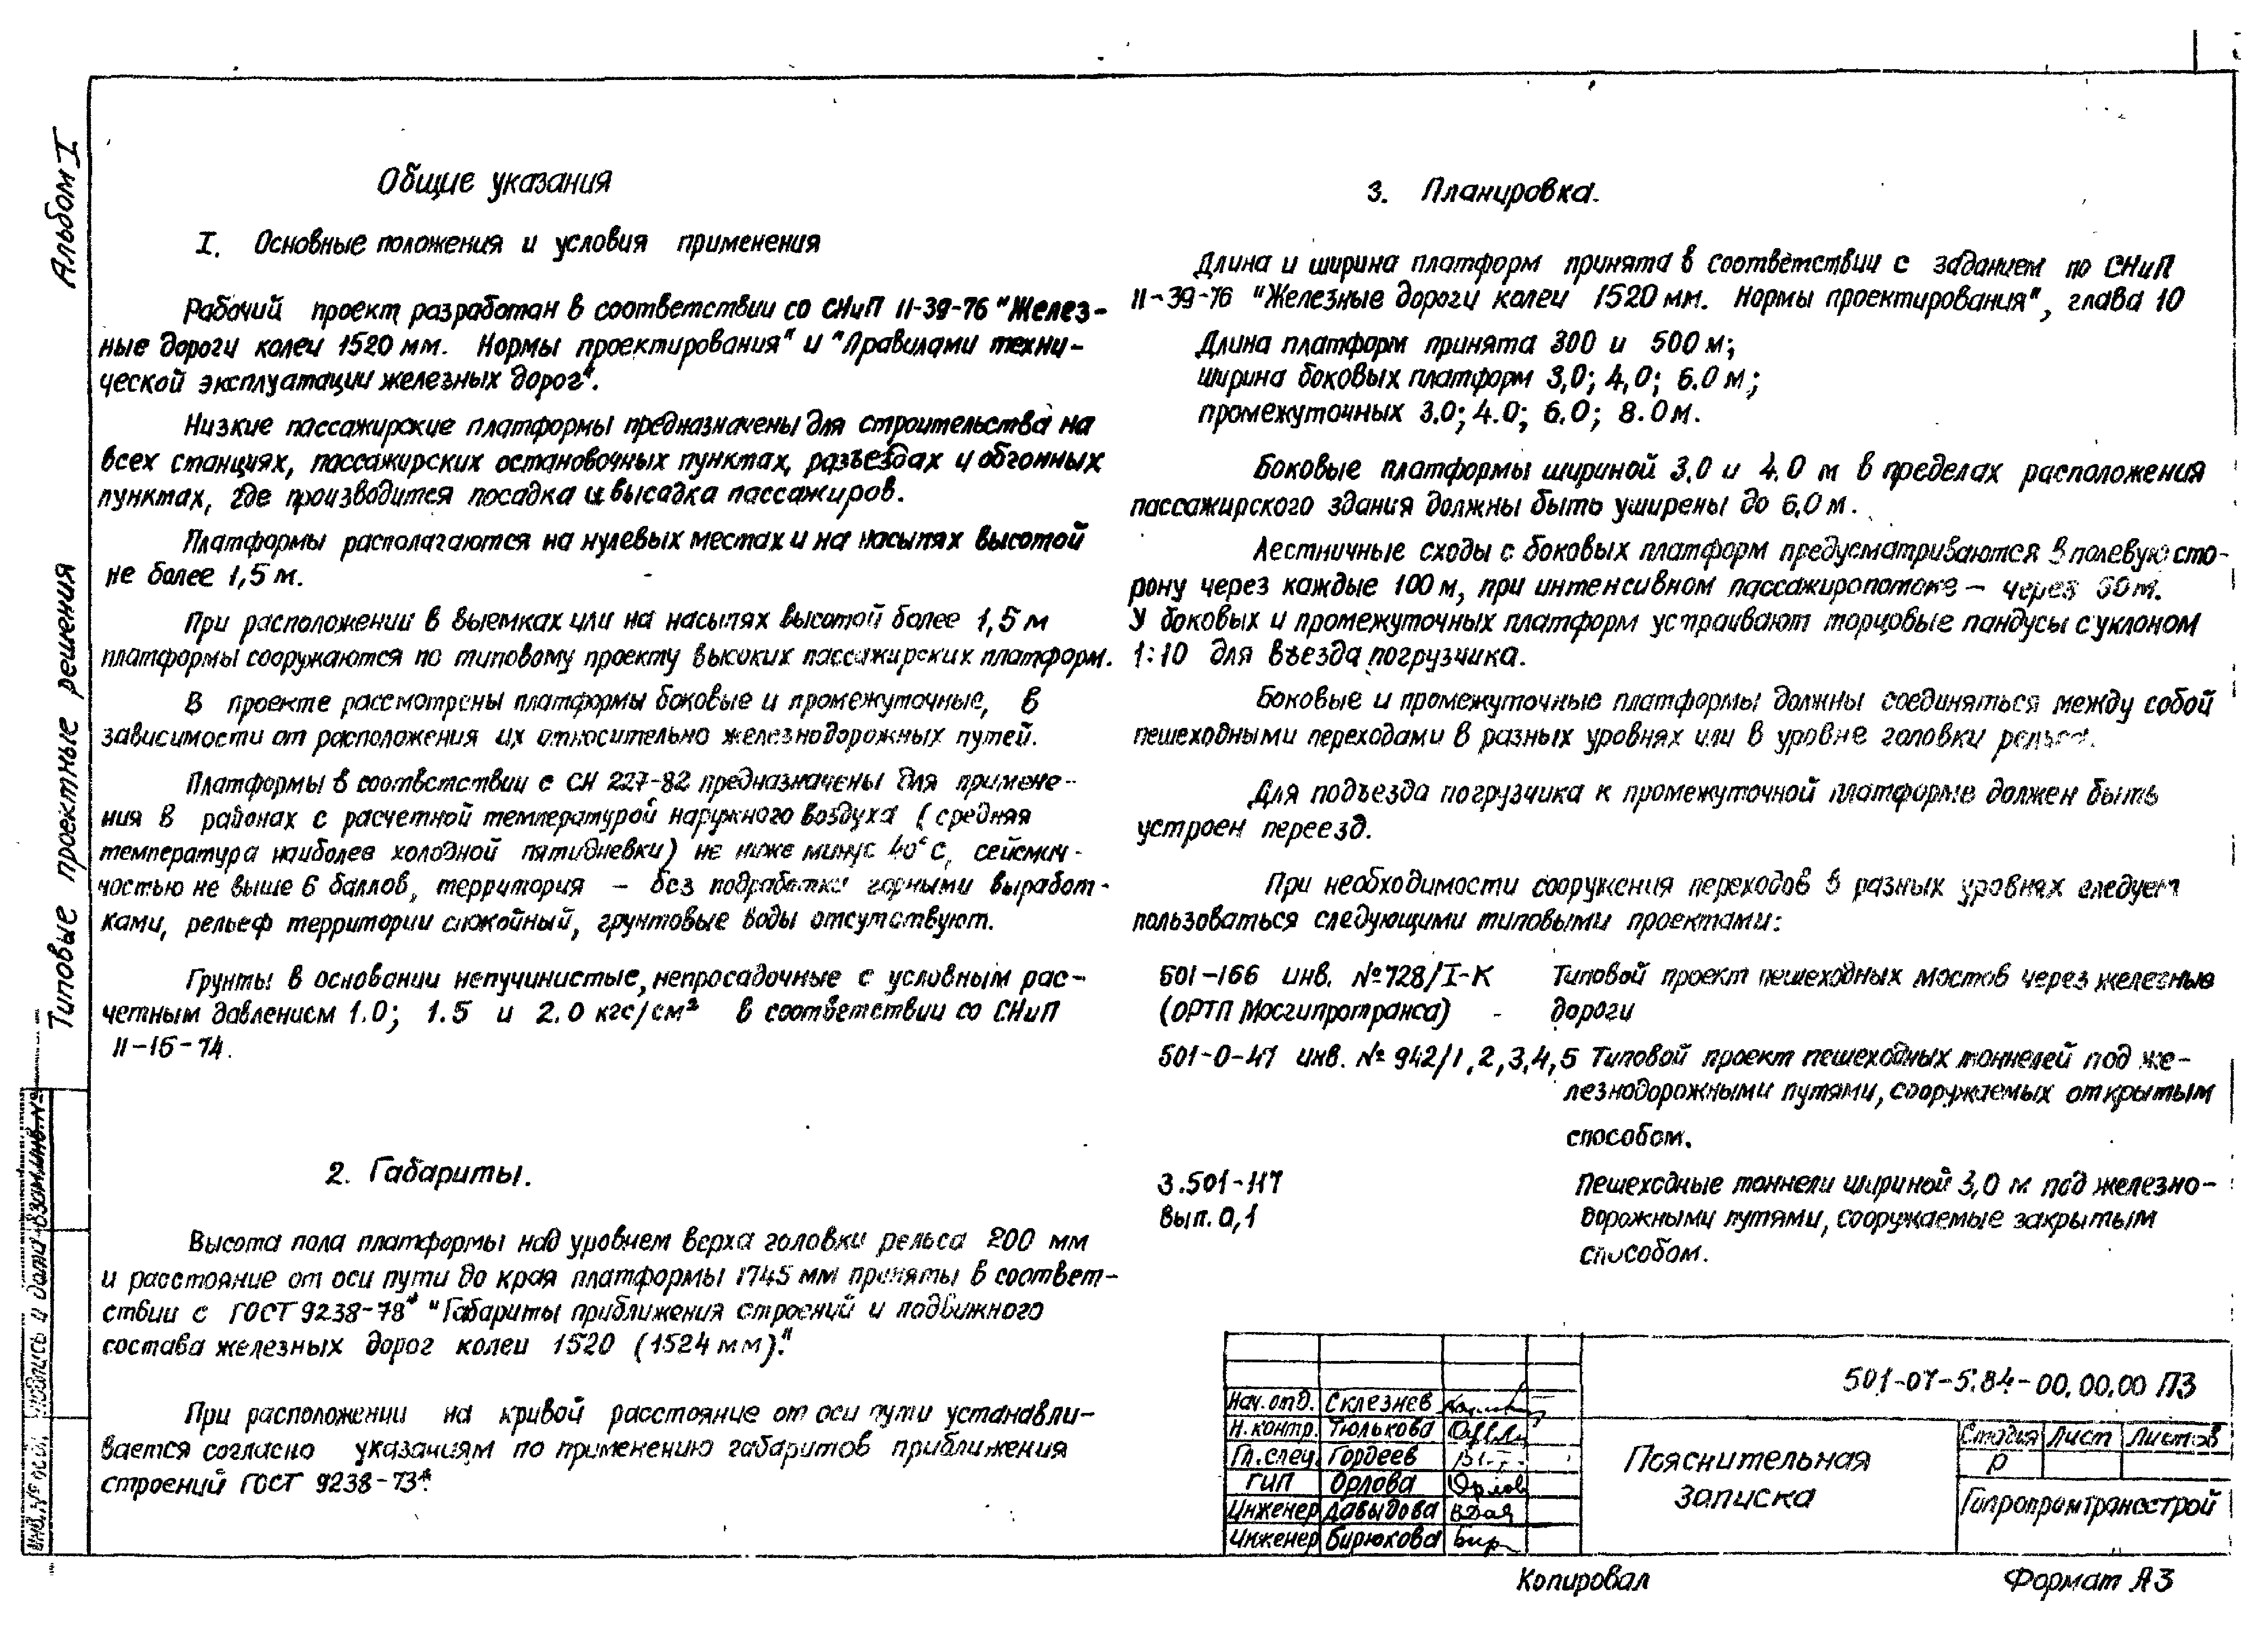 Альбом I
Типовые проектные решения
Общие указания
I. Основные положения и условия применения
Рабочий проект разработан в соответствии со СНиП II-39-76 "Желез-
ные дороги колеи 1520 мм. Нормы проектирования" и "Правилами техни-
ческой эксплуатации железных дорог".
Низкие пассажирские платформы предназначены для строительства на
всех станциях, пассажирских остановочных пунктах, разъездах и обгонных
пунктах, где производится посадка и высадка пассажиров.
Платформы располагаются на нулевых местах и на насыпях высотой
не более 1,5 м.
При расположении в выемках или на насыпях высотой более 1,5 м
платформы сооружаются по типовому проекту высоких пассажирских платформ.
В проекте рассмотрены платформы боковые и промежуточные, в
зависимости от расположения их относительно железнодорожных путей.
Платформы в соответствии с СН 227-82 предназначены для примене-
ния в районах с расчетной температурой наружного воздуха (средняя
температура наиболее холодной пятидневки) не ниже минус 40°С, сейсмич-
ностью не выше 6 баллов, территория - без подработки горными выработ-
ками, рельеф территории спокойный, грунтовые воды отсутствуют.
Грунты в основании непучинистые, непросадочные с условным рас-
четным давлением 1.0; 1.5 и 2.0 кгс/см² в соответствии со СНиП
II-15-74.
2. Габариты.
Высота пола платформы над уровнем верха головки рельса 200 мм
и расстояние от оси пути до края платформы 1745 мм приняты в соответ-
ствии с ГОСТ 9238-78* "Габариты приближения строений и подвижного
состава железных дорог колеи 1520 (1524 мм)."
При расположении на кривой расстояние от оси пути устанавли-
вается согласно указаниям по применению габаритов приближения
строений ГОСТ 9238-73*.
3. Планировка.
Длина и ширина платформ принята в соответствии с заданием по СНиП
II-39-76 "Железные дороги колеи 1520 мм. Нормы проектирования", глава 10
Длина платформ принята 300 и 500 м;
ширина боковых платформ 3,0; 4,0; 6.0 м;
промежуточных 3.0; 4.0; 6.0; 8.0 м.
Боковые платформы шириной 3.0 и 4.0 м в пределах расположения
пассажирского здания должны быть уширены до 6,0 м.
Лестничные сходы с боковых платформ предусматриваются в полевую сто-
рону через каждые 100 м, при интенсивном пассажиропотоке - через м.
У боковых и промежуточных платформ устраивают торцовые пандусы с уклоном
1:10 для въезда погрузчика.
Боковые и промежуточные платформы должны соединяться между собой
пешеходными переходами в разных уровнях или в уровне головки рельса.
Для подъезда погрузчика к промежуточной платформе должен быть
устроен переезд.
При необходимости сооружения переходов в разных уровнях следует
пользоваться следующими типовыми проектами:
501-166 инв. №728/I-К Типовой проект пешеходных мостов через железные
(ОРТП Мосгипротранса) - дороги
501-0-47 инв. № 942/1,2,3,4,5 Типовой проект пешеходных тоннелей под же-
лезнодорожными путями, сооружаемых открытым
способом.
3.501-117 Пешеходные тоннели шириной 3,0 м под железно-
Вып. 0,1 дорожными путями, сооружаемые закрытым
способом.
501-07-5.84-00.00.00 ПЗ
Нач. отд. Склезнев
Н. контр. Тюлькова
Гл. спец. Гордеев
ГИП Орлова
Инженер Давыдова
Инженер Бирюкова
Пояснительная
записка
Стадия Лист Листов
Р
Гипропромтрансстрой
Инв. № подл. Подпись и дата Взам. инв. №
Копировал Формат А3